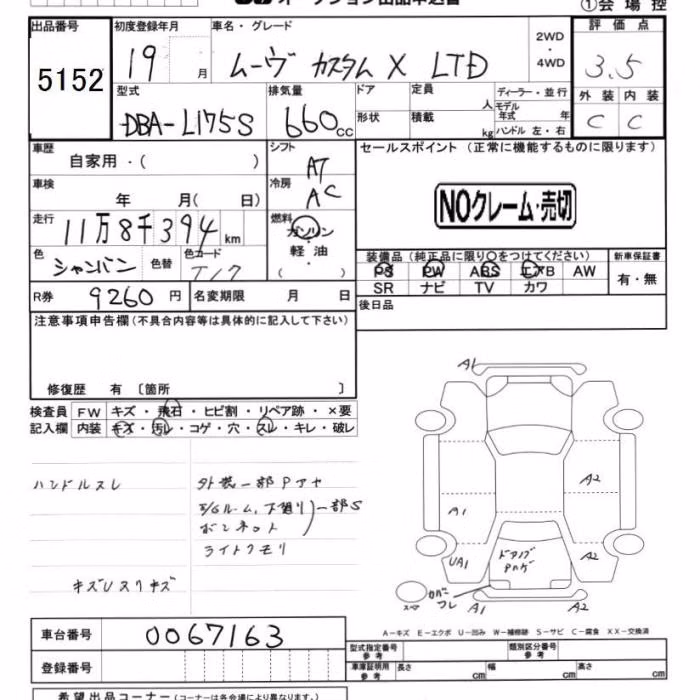 ①会場控
出品番号 初度登録年月 車名・グレード 評価点
5152 19 月 ムーヴ カスタム X LTD 2WD・4WD 3.5
型式 排気量 ドア 定員 人 ディーラー・並行 外装 内装
DBA-L175S 660cc 形状 積載 kg モデル年式 年 ハンドル 左・右 C C
車歴 シフト セールスポイント(正常に機能するものに限ります)
自家用・( ) AT
車検 冷房
年 月(日) AC NOクレーム・売切
走行 燃料
11万8千394km ガソリン・軽油・( )
色 色替 色カード 装備品(純正品に限り○をつけてください) 新車保証書
シャンパン T17 PS PW ABS エアB AW 有・無
SR ナビ TV カワ
R券 9260円 名変期限 月 日 後日品
注意事項申告欄(不具合内容等は具体的に記入して下さい)
修復歴 有〔箇所 〕
検査員 FW キズ・飛石・ヒビ割・リペア跡・×要
記入欄 内装 キズ・汚レ・コゲ・穴・スレ・キレ・破レ
ハンドルスレ 外装一部Pアセ
E/Gルーム、下廻り 一部S
ボンネット
ライトクモリ
A1
A2
A1
UA1 A2
スペア A1 A2
A-キズ E-エクボ U-凹み W-補修跡 S-サビ C-腐食 XX-交換済
車台番号 0067163
登録番号
型式指定番号 参考 類別区分番号 参考
車庫証明用 参考 長さ cm 幅 cm 高さ cm
希望出品コーナー(コーナーは各会場により異なります。)